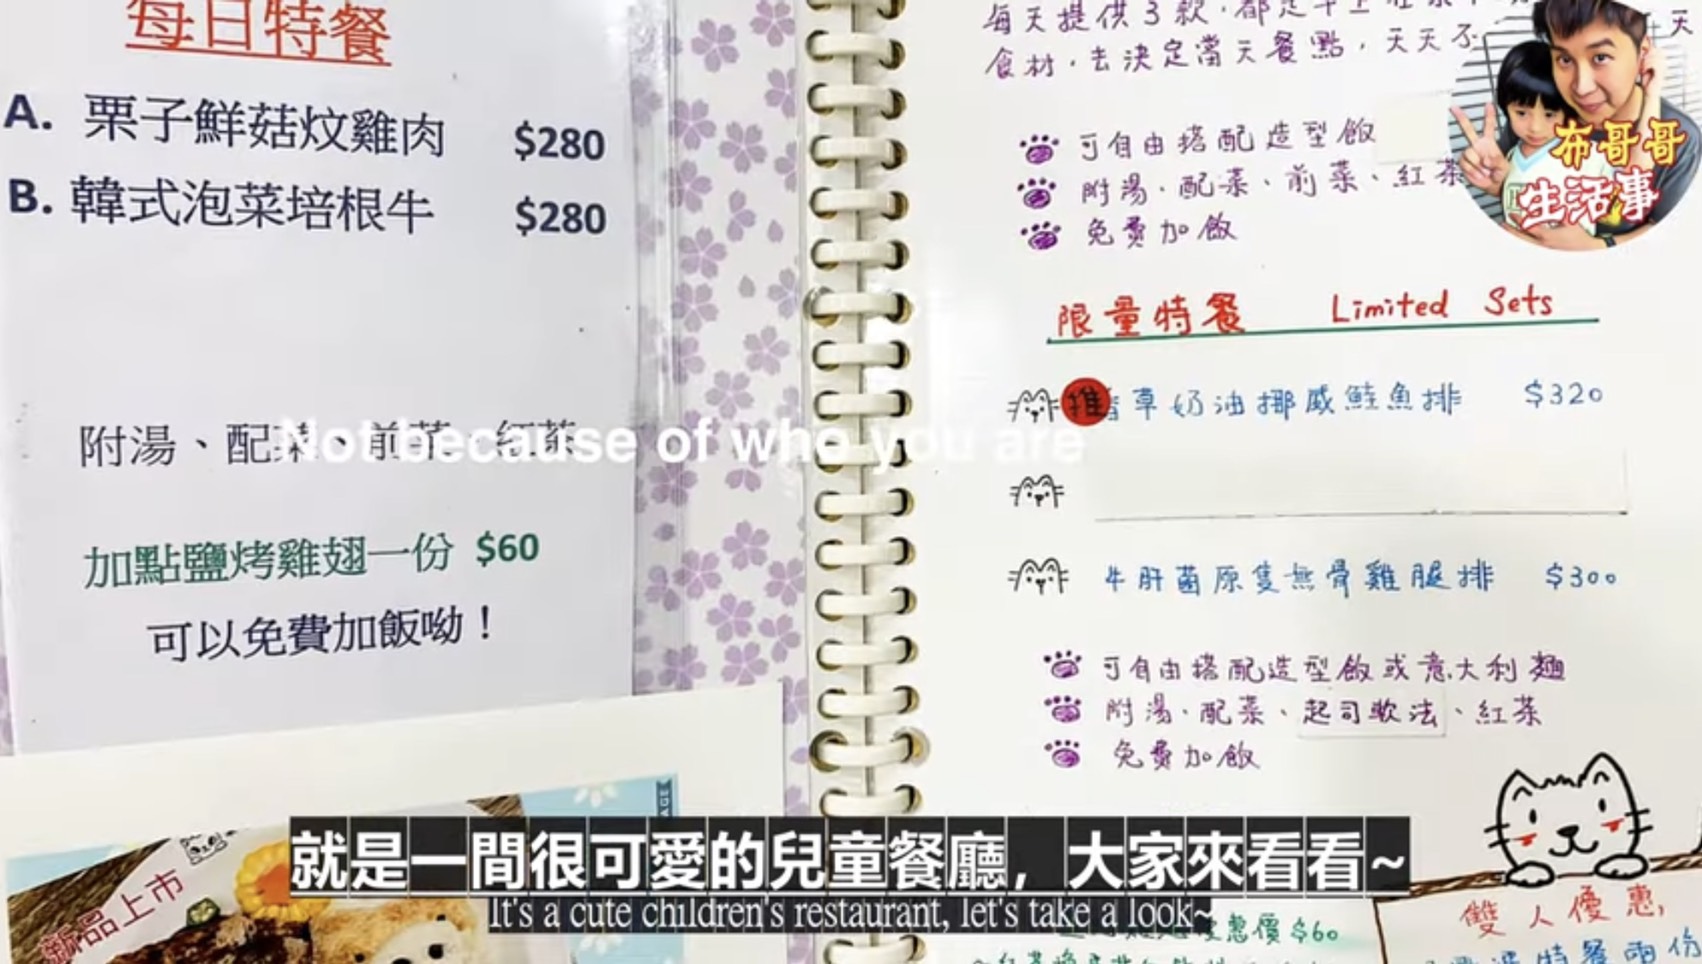 每日特餐
A. 栗子鮮菇炆雞肉 $280
B. 韓式泡菜培根牛 $280
附湯、配菜、前菜、紅茶
加點鹽烤雞翅一份 $60
可以免費加飯呦！
新品上市
每天提供3款，都是早上在
食材，去決定當天餐點，天天不
天
可自由搭配造型飯
附湯、配菜、前菜、紅茶
免費加飯
限量特餐 Limited Sets
推 草奶油挪威鮭魚排 $320
牛肝菌原隻無骨雞腿排 $300
可自由搭配造型飯或意大利麵
附湯、配菜、起司歐法、紅茶
免費加飯
惠價$60
雙人優惠，
特餐兩份
布哥哥
生活事
Not because of who you are
就是一間很可愛的兒童餐廳，大家來看看~
It's a cute children's restaurant, let's take a look~